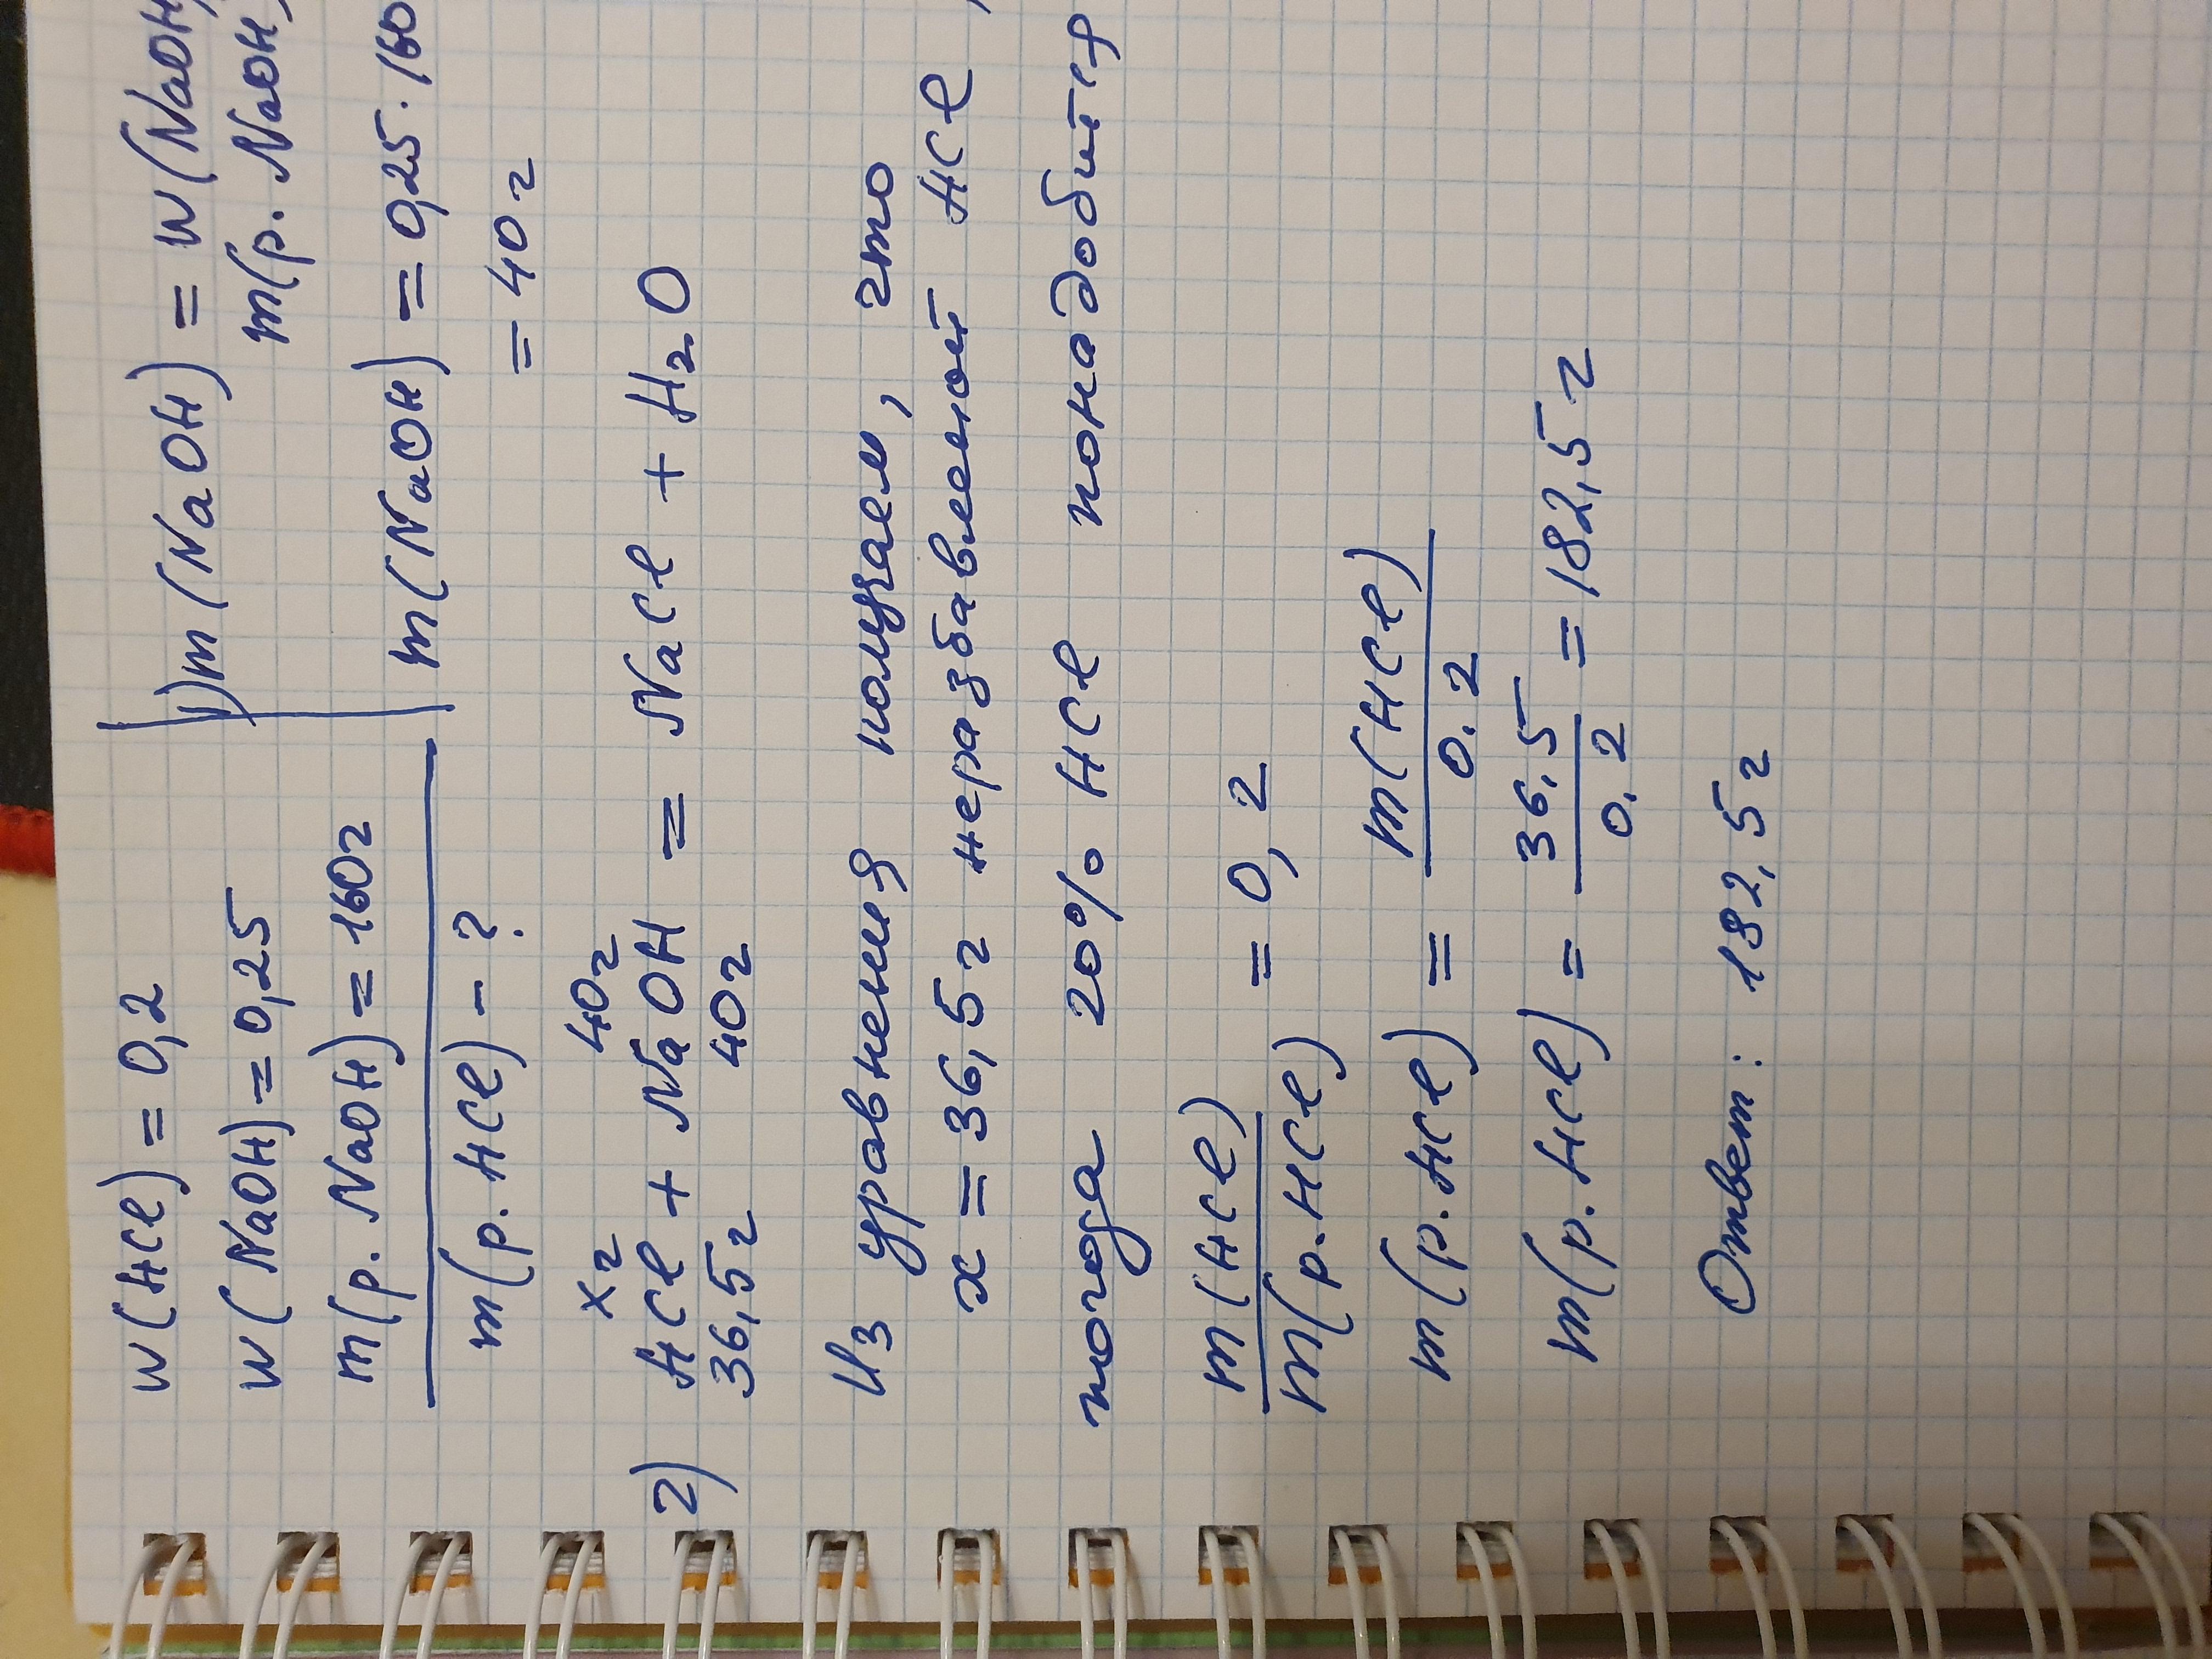 w(HCl) = 0,2
w(NaOH) = 0,25
m(р. NaOH) = 160г
m(р. HCl) - ?
1) m(NaOH) = w(NaOH)
m(р. NaOH)
m(NaOH) = 0,25·160
= 40г
xг 40г
2) HCl + NaOH = NaCl + H₂O
36,5г 40г
Из уравнения получаем, что
x = 36,5г неразбавленой HCl,
тогда 20% HCl понадобится
m(HCl)/m(р.HCl) = 0,2
m(р.HCl) = m(HCl)/0.2
m(р.HCl) = 36,5/0.2 = 182,5г
Ответ: 182,5г